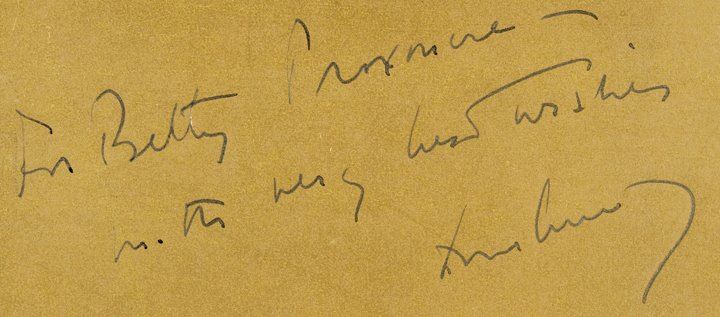 For Betty Proxmire –
with very best wishes